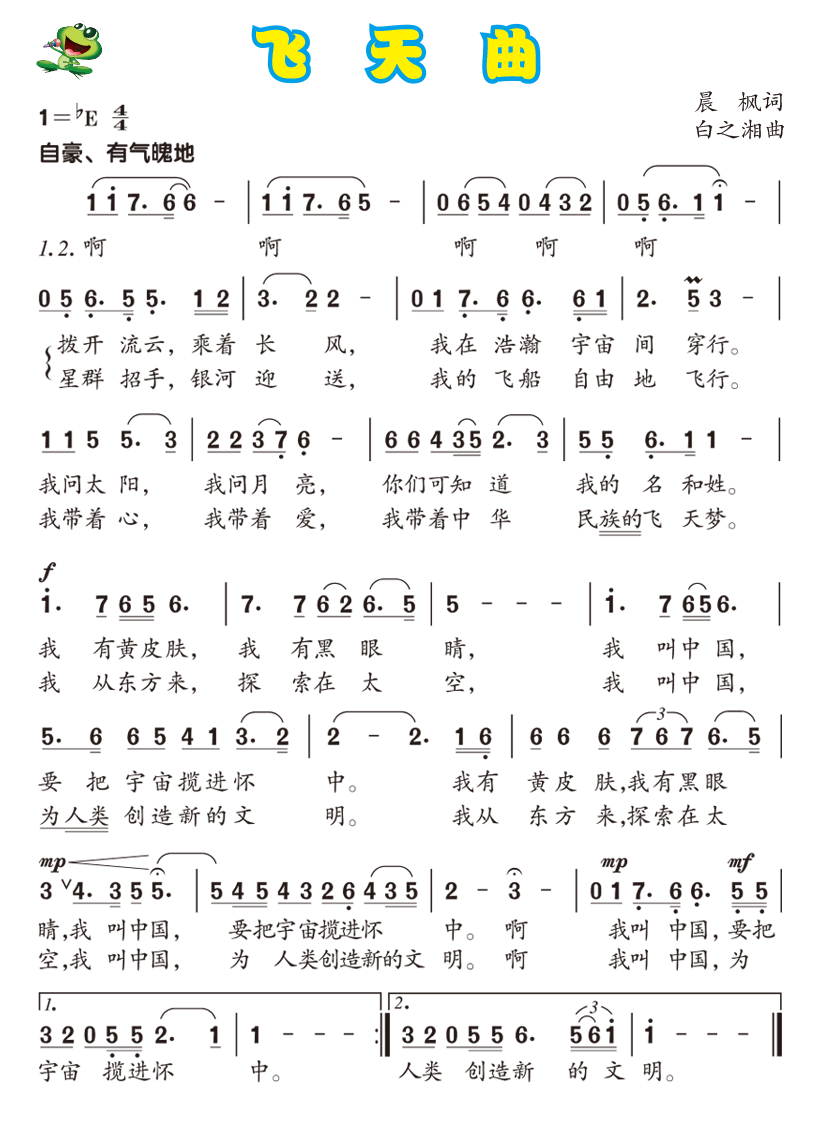 飞天曲
1=♭E 4/4
晨 枫词
白之湘曲
自豪、有气魄地
1 i 7. 6 6 - | 1 i 7. 6 5 - | 0 6 5 4 0 4 3 2 | 0 5 6. 1 1 - |
1.2. 啊 啊 啊 啊 啊
0 5 6. 5 5. 1 2 | 3. 2 2 - | 0 1 7. 6 6. 6 1 | 2. 5 3 - |
拨开 流云，乘着 长 风， 我在 浩瀚 宇宙 间 穿行。
星群 招手，银河 迎 送， 我的 飞船 自由 地 飞行。
1 1 5 5. 3 | 2 2 3 7 6 - | 6 6 4 3 5 2. 3 | 5 5 6. 1 1 - |
我问太 阳， 我问月 亮， 你们可知 道 我的 名 和姓。
我带着 心， 我带着 爱， 我带着中 华 民族的飞 天梦。
f
i. 7 6 5 6. | 7. 7 6 2 6. 5 | 5 - - - | i. 7 6 5 6. |
我 有黄皮肤， 我 有黑 眼 睛， 我 叫中 国，
我 从东方来， 探 索在 太 空， 我 叫中 国，
5. 6 6 5 4 1 3. 2 | 2 - 2. 1 6 | 6 6 6 7 6 7 6. 5 |
3
要 把 宇宙揽进怀 中。 我有 黄皮 肤，我有黑眼
为人类 创造新的文 明。 我从 东方 来，探索在太
mp mp mf
3 ∨ 4. 3 5 5. | 5 4 5 4 3 2 6 4 3 5 | 2 - 3 - | 0 1 7. 6 6. 5 5 |
睛，我 叫中国， 要把宇宙揽进怀 中。 啊 我叫 中国，要把
空，我 叫中国， 为 人类创造新的文 明。 啊 我叫 中国，为
1. 2.
3
3 2 0 5 5 2. 1 | 1 - - - :| 3 2 0 5 5 5 6. 5 6 i | i - - - |
宇宙 揽进怀 中。 人类 创造新 的 文 明。